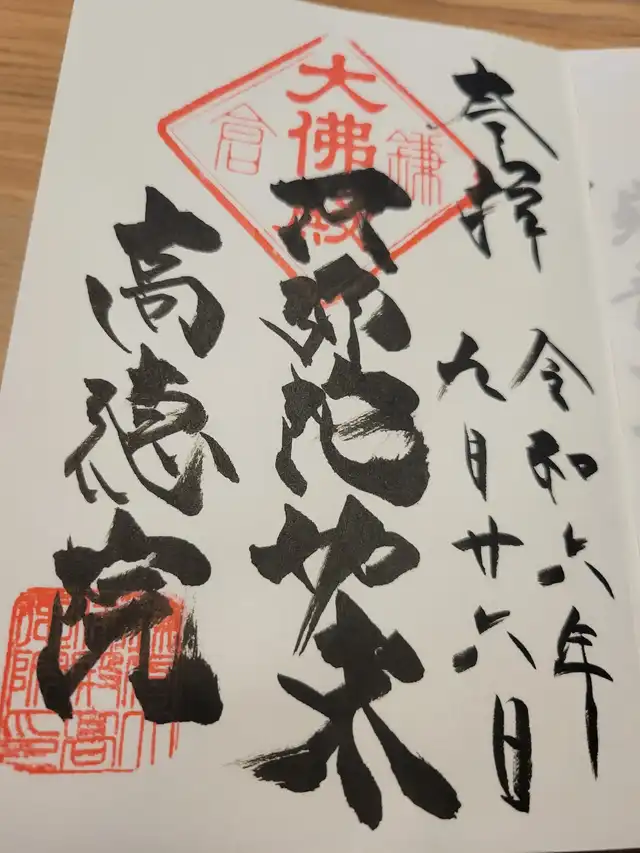 奉拝
令和六年
九月廿六日
鎌倉
大佛殿
阿弥陀如来
高徳院